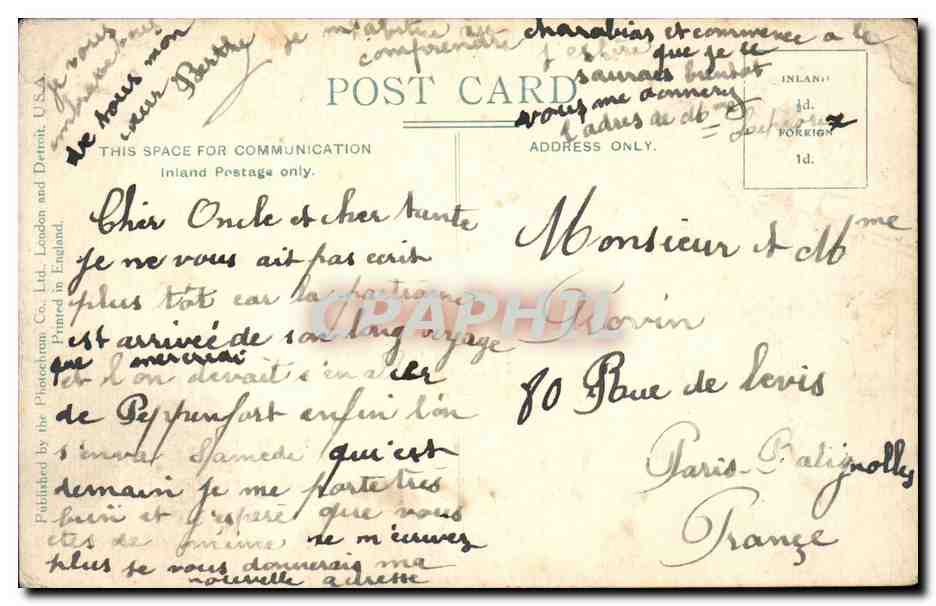 je m'abitue au charabias et commence a le
comprendre j'espère que je le
saurais bientôt
vous me donnerez
l'adres de Mme
je vous
embrasse
de tous mon
cœur Berthe
POST CARD
THIS SPACE FOR COMMUNICATION
Inland Postage only.
ADDRESS ONLY.
INLAND
½d.
FOREIGN
1d.
Published by the Photochrom Co., Ltd., London and Detroit, U.S.A.
Printed in England.
Cher Oncle et cher tante
je ne vous ait pas ecrit
plus tôt car la patronne
est arrivée de son long voyage
que mercredi
et l'on devait s'en aller
de Peppenfort enfin l'on
s'en va Samedi qui est
demain je me porte très
bien et j'espère que vous
etes de même ne m'ecrivez
plus je vous donnerais ma
nouvelle adresse
Monsieur et Mme
Prévin
80 Rue de Levis
Paris-Batignolles
France
CPAPHIL